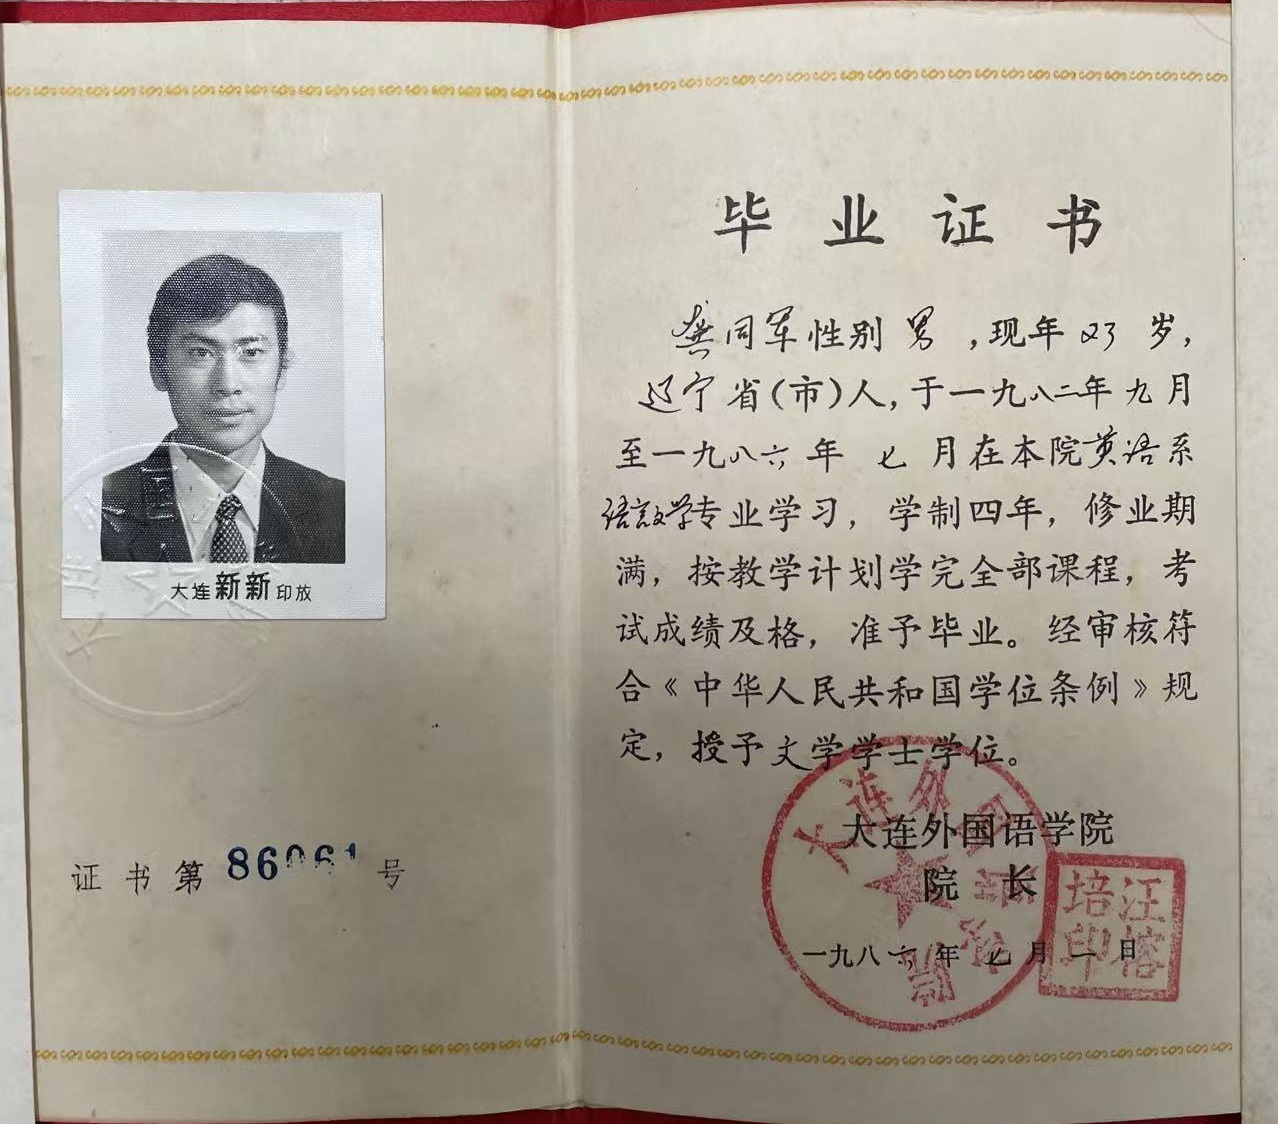 大连新新印放
证书第 86061 号
毕业证书
龚同军性别 男 ，现年 23 岁，
辽宁省（市）人，于一九八二年九月
至一九八六年 七 月在本院英语系
语言文学专业学习，学制四年，修业期
满，按教学计划学完全部课程，考
试成绩及格，准予毕业。经审核符
合《中华人民共和国学位条例》规
定，授予文学学士学位。
大连外国语学院
院 长
汪榕培印
一九八六年七月一日
大连外国语学院